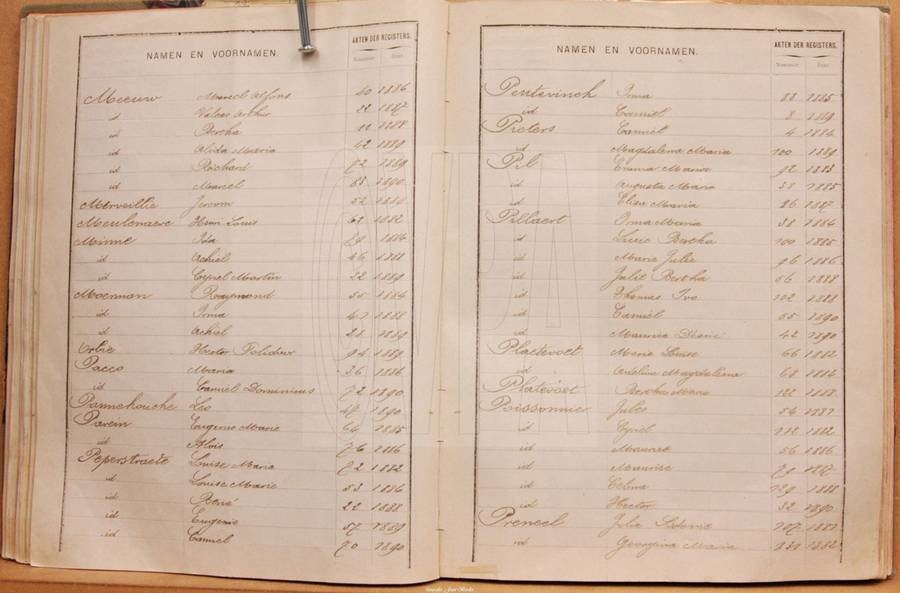 NAMEN EN VOORNAMEN. AKTEN DER REGISTERS.
Nummer Jaar
Meeuw Marcel Alfons 40 1886
id Valeer Arthur 22 1887
id Bertha 11 1888
id Alida Maria 42 1889
id Richard 72 1889
id Marcel 83 1890
Merveillie Jerom 52
Meulenaere Henri Louis 62 1882
Minne Ida 1884
id Achiel 46 1888
id Cyriel Martin 22 1889
Moerman Raymond 55 1884
id Irma 47 1888
id Achiel 28 1889
Orbie Hector Polidor 94 1889
Pacco Maria 36 1886
id Camiel Dominicus 72 1890
Pannekoucke Leo 1890
Parein Eugenie Marie 64 1885
id Alois 76 1886
Peperstraete Louise Maria 72 1882
id Louise Marie 53 1886
id René 22 1888
id Eugenie 57 1889
id Camiel 70 1890
NAMEN EN VOORNAMEN. AKTEN DER REGISTERS.
Nummer Jaar
Pentevinck Irma 83 1885
id Camiel 8 1889
Pieters Camiel 4 1884
id Magdalena Maria 100 1889
Pil Emma Maria 92 1883
id Augusta Maria 38 1885
id Elisa Maria 86 1887
Pillaert Irma Maria 38 1884
id Lucie Bertha 100 1885
id Marie Julie 96 1886
id Julie Bertha 56 1888
id Thomas Ivo 102 1888
id Camiel 65 1890
id Maurice 42 1890
Plactevoet Marie Louise 66 1882
id Adeline Magdalena 68 1884
Platevoet Bertha Maria 122 1888
Poissonnier Jules 54
id Cyriel 112 1882
id Maurice 56 1886
id Maurice 1887
id Celina 1888
id Hector 32 1890
Preneel Julie Sidonie 107 1882
id Georgina Maria 1882